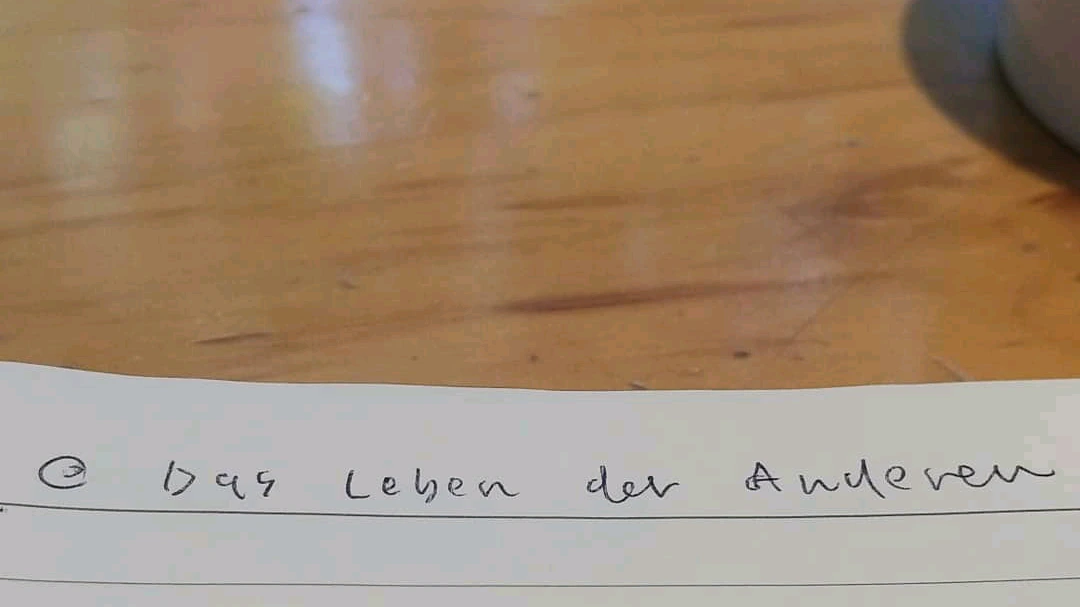 Das Leben der Anderen